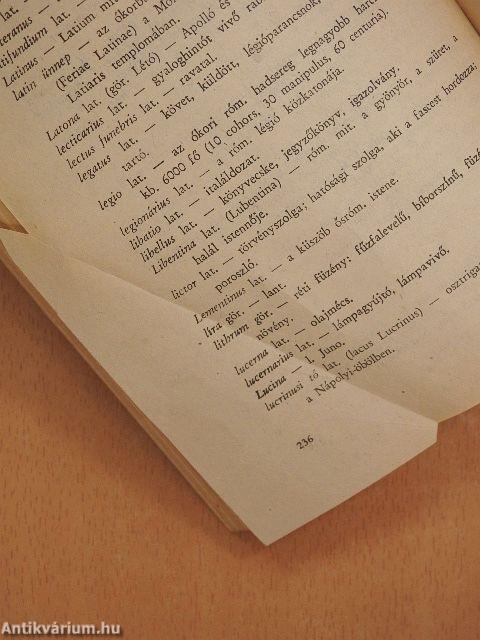 teranus lat.
atifundium lat. —
Latinus — Latium mit
latin ünnep — az ókorb
(Feriae Latinae) a Mo
Latiaris templomában.
Latona lat (gör. Létó) — Apolló és
lecticarius lat. — gyaloghintót vivő rab
lectus funebris lat. — ravatal.
legatus lat. — követ, küldött, légióparancsnok,
tartó.
legio lat. — az ókori róm. hadsereg legnagyobb harc
kb. 6000 fő (10 cohors, 30 manipulus, 60 centuria).
legionárius lat. — a róm. légió közkatonája.
libatio lat. — italáldozat.
libellus lat. — könyvecske, jegyzőkönyv, igazolvány.
Libentina lat. (Lubentina) — róm. mit. a gyönyör, a szüret, a
halál istennője.
lictor lat. — törvényszolga; hatósági szolga, aki a fascest hordozza;
poroszló.
Lementinus lat. — a küszöb ősróm. istene.
lira gör. — lant.
lithrum gör. — réti füzény; fűzfalevelű, bíborszínű, füzé
növény.
lucerna lat. — olajmécs.
lucernarius lat. — lámpagyújtó, lámpavivő.
Lucina — l. Juno.
lucrinusi tó lat. (lacus Lucrinus) — osztriga
a Nápolyi-öbölben.
236
Antikvárium.hu